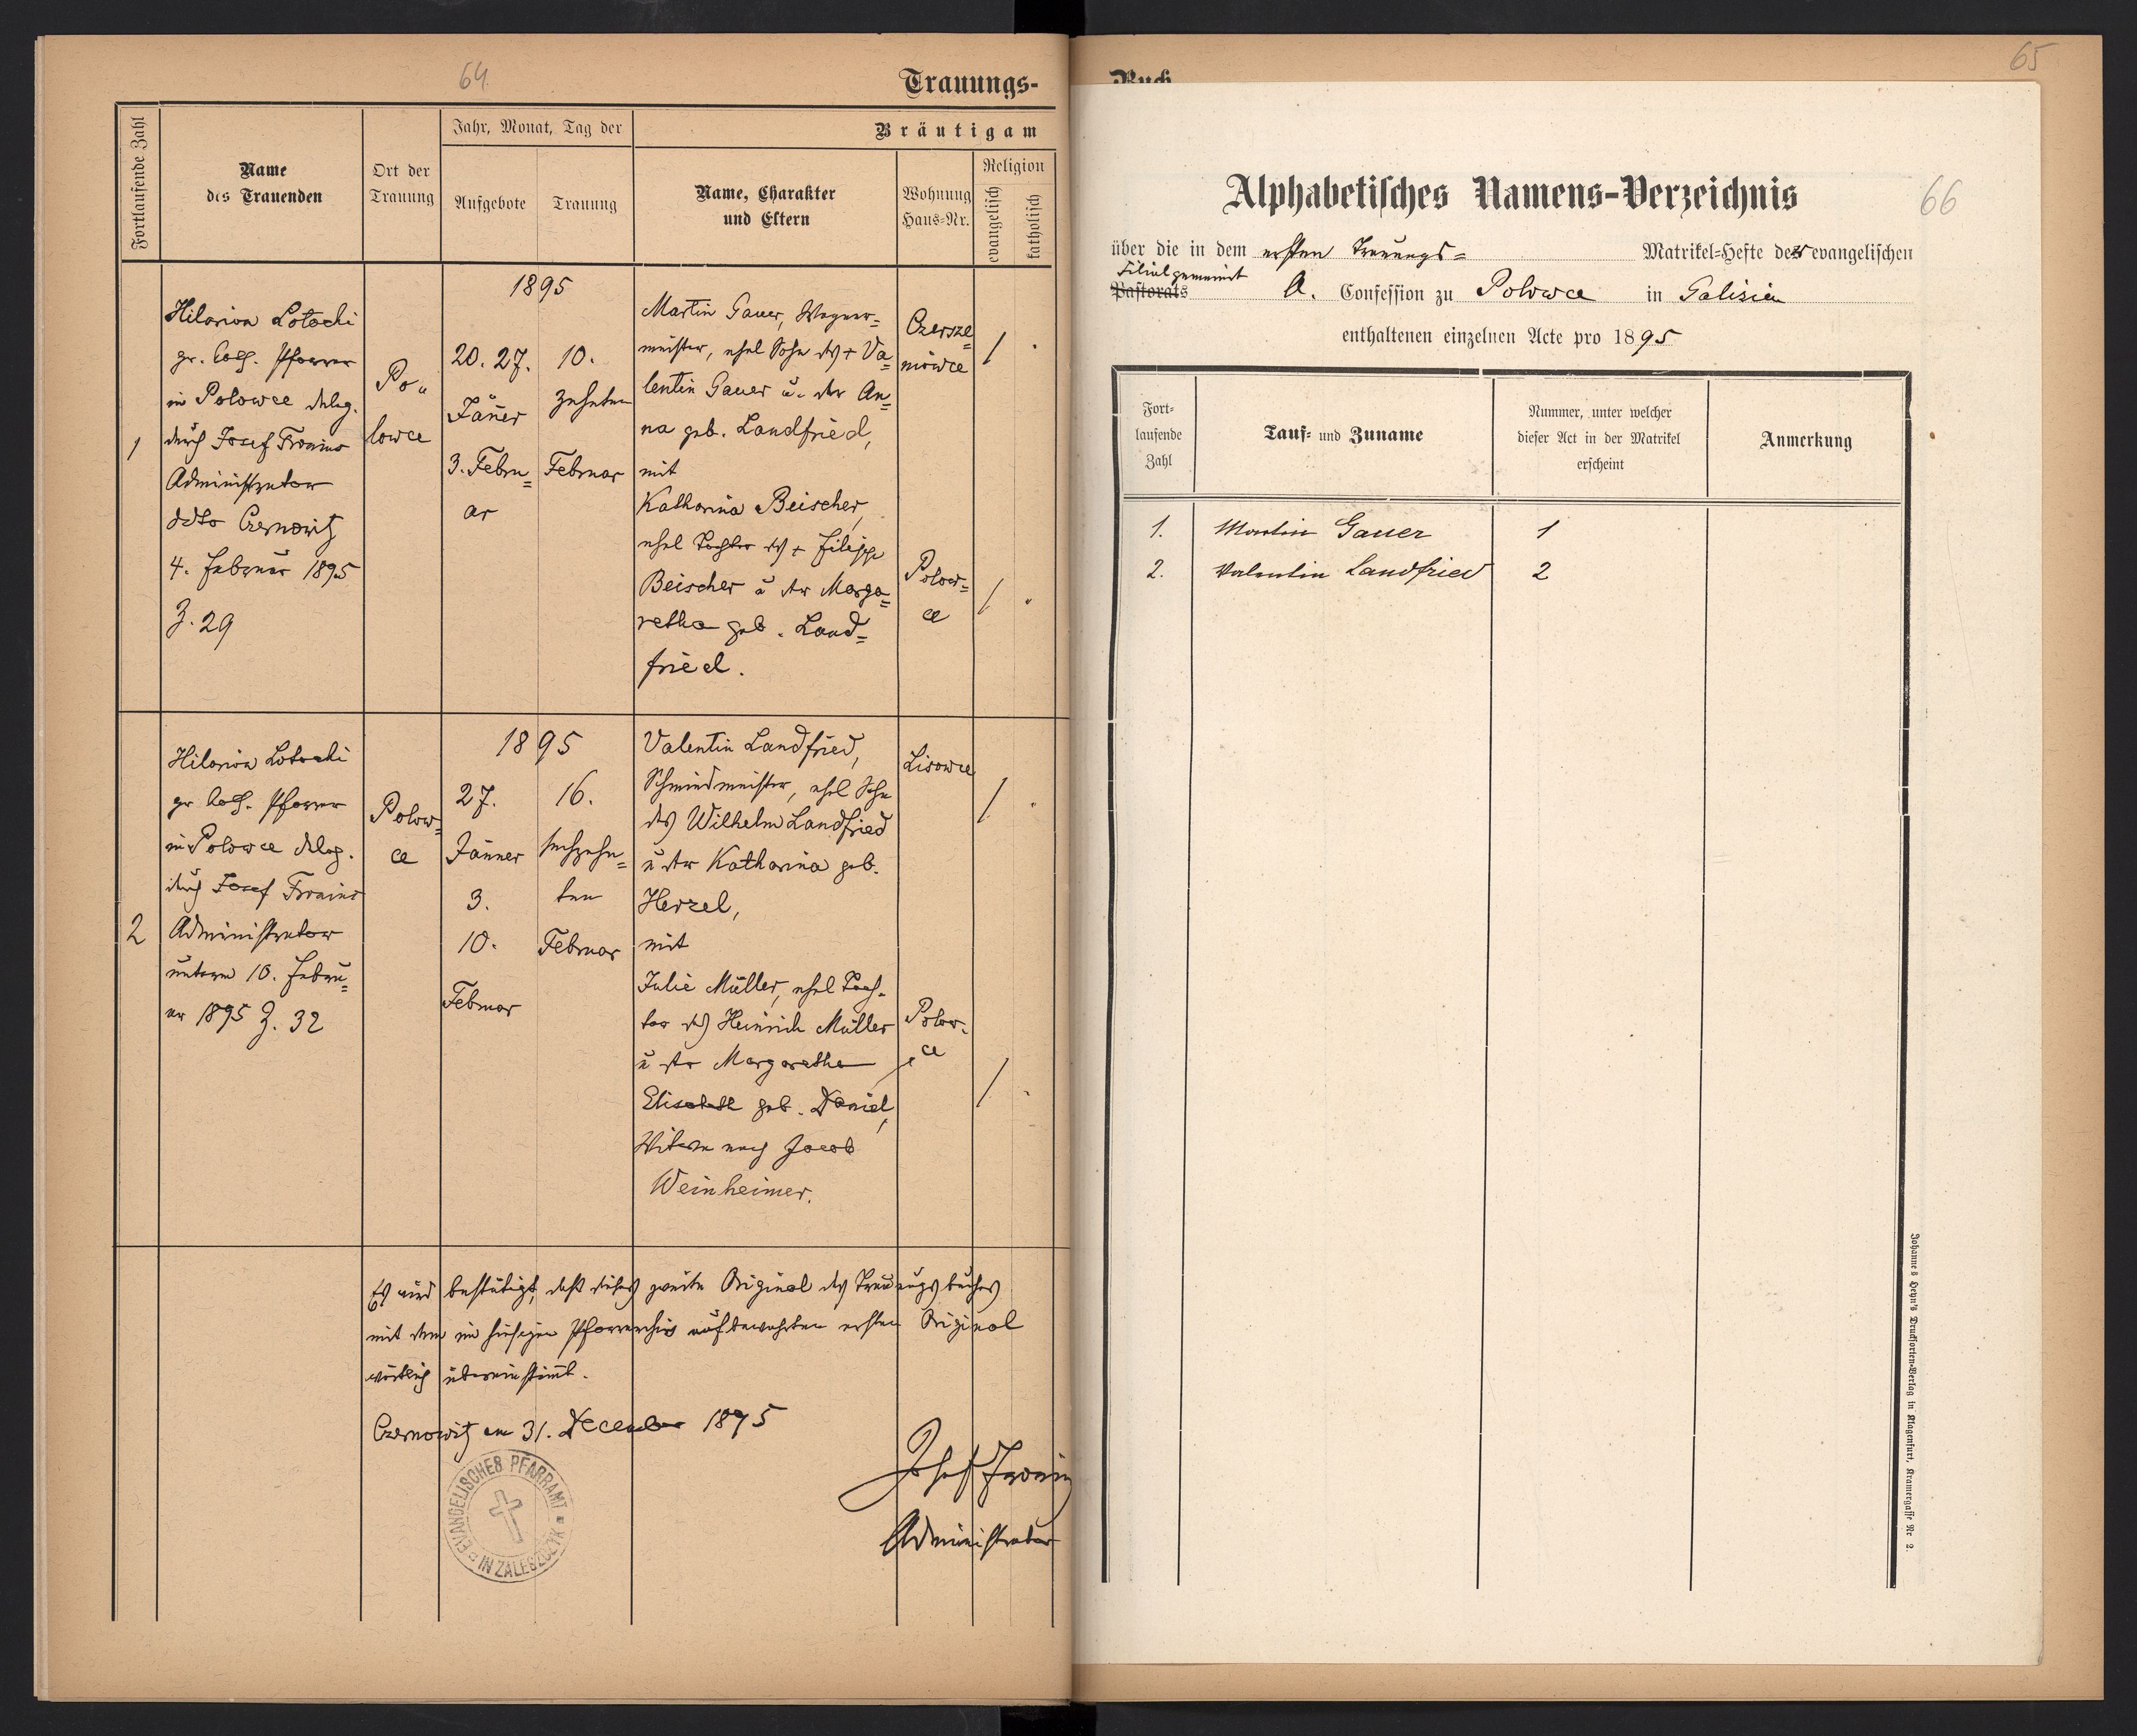 64
Trauungs-
Fortlaufende Zahl
Name
des Trauenden
Ort der
Trauung
Jahr, Monat, Tag der
Aufgebote
Trauung
Bräutigam
Name, Charakter
und Eltern
Wohnung
Haus-Nr.
Religion
evangelisch
katholisch
1
Hilarion Lotocki
gr. kath. Pfarrer
in Polowce deleg.
durch Josef Fronius
Administrator
ddto Czernowitz
4. Februar 1895
Z. 29
Po-
lowce
1895
20. 27.
Jänner
3. Febru=
ar
10.
zehnten
Februar
Martin Gauer, Wagner=
meister, ehel Sohn des + Va=
lentin Gauer u. der An=
na geb. Landfried,
mit
Katharina Beischer,
ehel Tochter des + Filipp
Beischer u der Marga=
retha geb. Land=
fried.
Czersze=
niowce
Polow=
ce
2
Hilarion Lotocki
gr kath. Pfarrer
in Polowce deleg.
durch Josef Fronius
Administrator
unterm 10. Febru=
ar 1895 Z. 32
Polow=
ce
1895
27.
Jänner
3.
10.
Februar
16.
sechzehn=
ten
Februar
Valentin Landfried,
Schmiedmeister, ehel Sohn
des Wilhelm Landfried
u der Katharina geb.
Herzel,
mit
Julie Müller, ehel Toch-
ter des Heinrich Müller
u der Margaretha
Elisabeth geb. Daniel,
Witwe nach Jacob
Weinheimer.
Lisowce
Polow-
ce
Es wird bestätigt, daß dieses zweite Original des Trauungsbuches
mit dem im hiesigen Pfarrarchiv aufbewahrten ersten Original
wörtlich übereinstimmt.
Czernowitz am 31. December 1895
EVANGELISCHES PFARRAMT
IN ZALESZCZYK
Josef Fronius
Administrator
Buch
65
66
Alphabetisches Namens-Verzeichnis
über die in dem ersten Trauungs= Matrikel-Hefte der evangelischen
Filialgemeinde
Pastorats A. Confession zu Polowce in Galizien
enthaltenen einzelnen Acte pro 1895
Fort-
laufende
Zahl
Tauf- und Zuname
Nummer, unter welcher
dieser Act in der Matrikel
erscheint
Anmerkung
1. Martin Gauer 1
2. Valentin Landfried 2
Johannes Heyn's Drucksorten-Verlag in Klagenfurt, Kramergasse Nr 2.